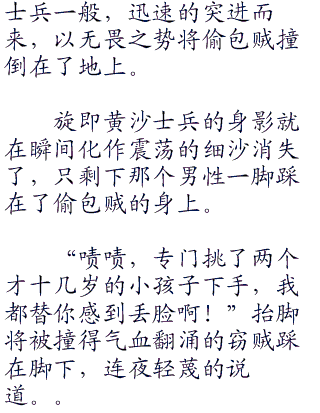 士兵一般，迅速的突进而
来，以无畏之势将偷包贼撞
倒在了地上。
旋即黄沙士兵的身影就
在瞬间化作震荡的细沙消失
了，只剩下那个男性一脚踩
在了偷包贼的身上。
“啧啧，专门挑了两个
才十几岁的小孩子下手，我
都替你感到丢脸啊！”抬脚
将被撞得气血翻涌的窃贼踩
在脚下，连夜轻蔑的说
道。。